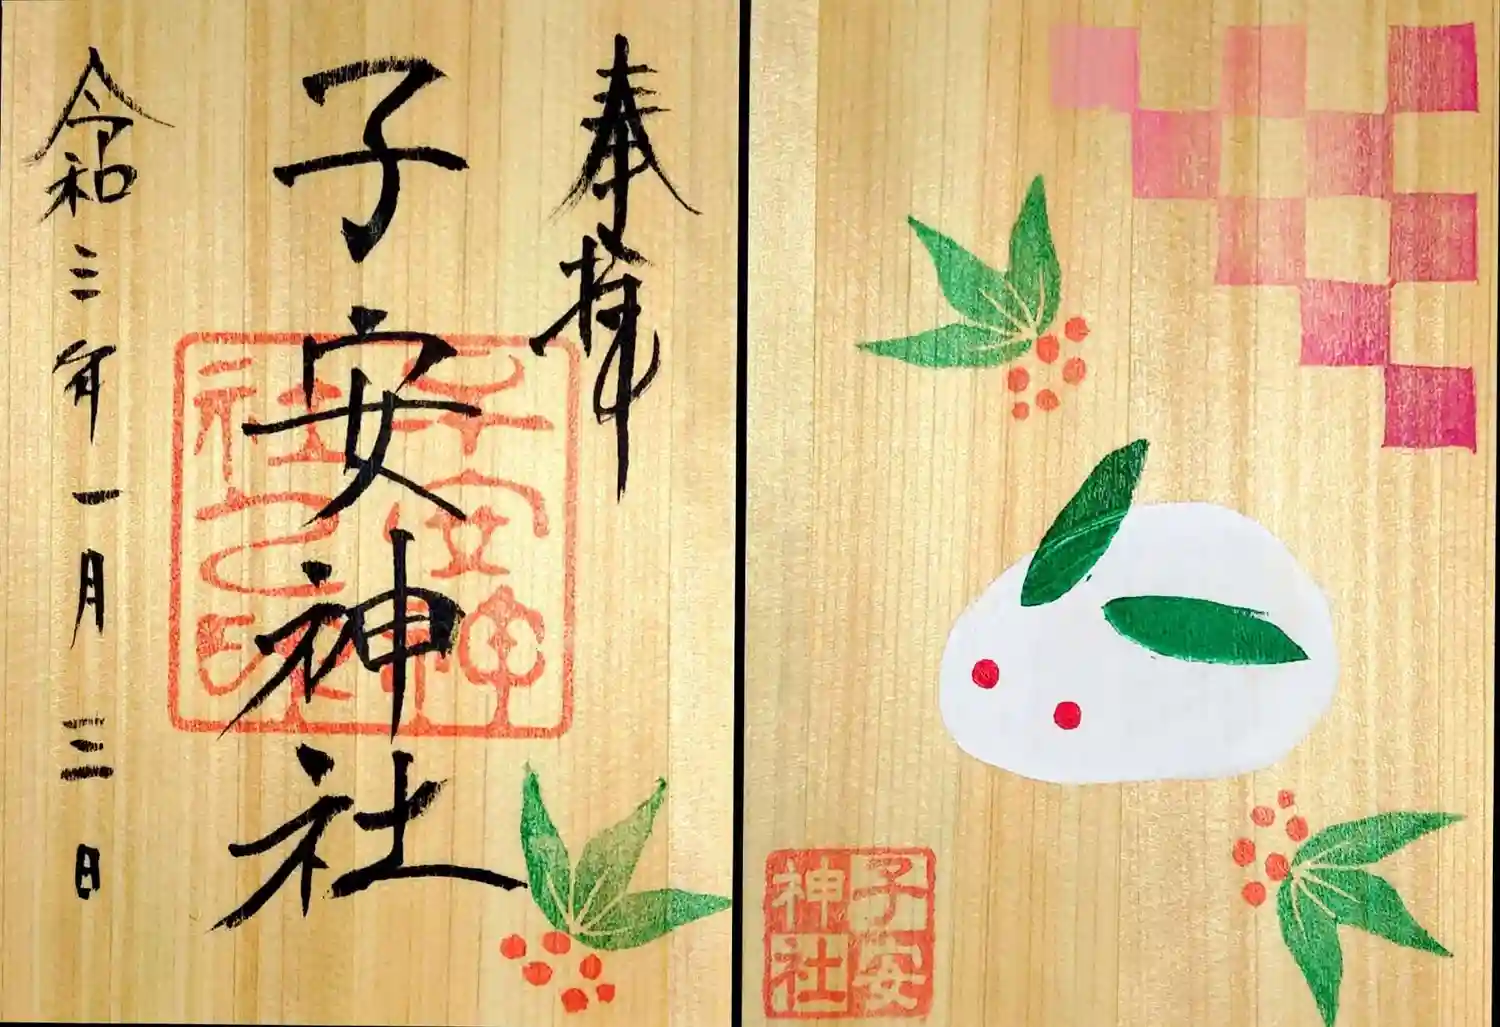 奉拝
子安神社
令和三年一月三日
子安神社之印
子安神社